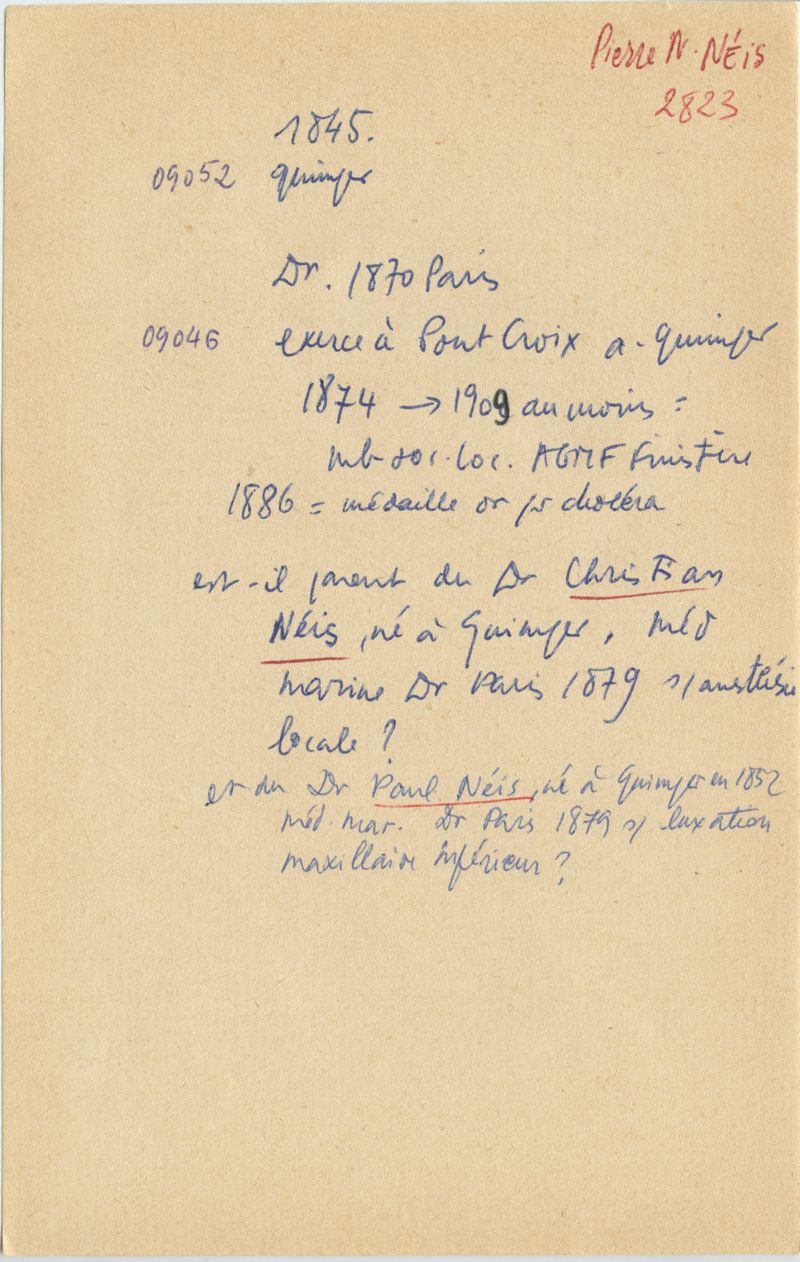 Pierre N. NÉIS
2823
1845.
09052 Quimper
Dr. 1870 Paris
09046 exerce à Pont Croix a. Quimper
1874 → 1909 au moins =
mb soc. loc. AGMF Finistère
1886 = médaille or pr choléra
est-il parent du Dr Christian
Néis, né à Quimper, méd
marine Dr Paris 1879 s/ anesthésie
locale ?
et du Dr Paul Néis, né à Quimper en 1852
méd. mar. Dr Paris 1879 s/ luxation
maxillaire inférieur ?